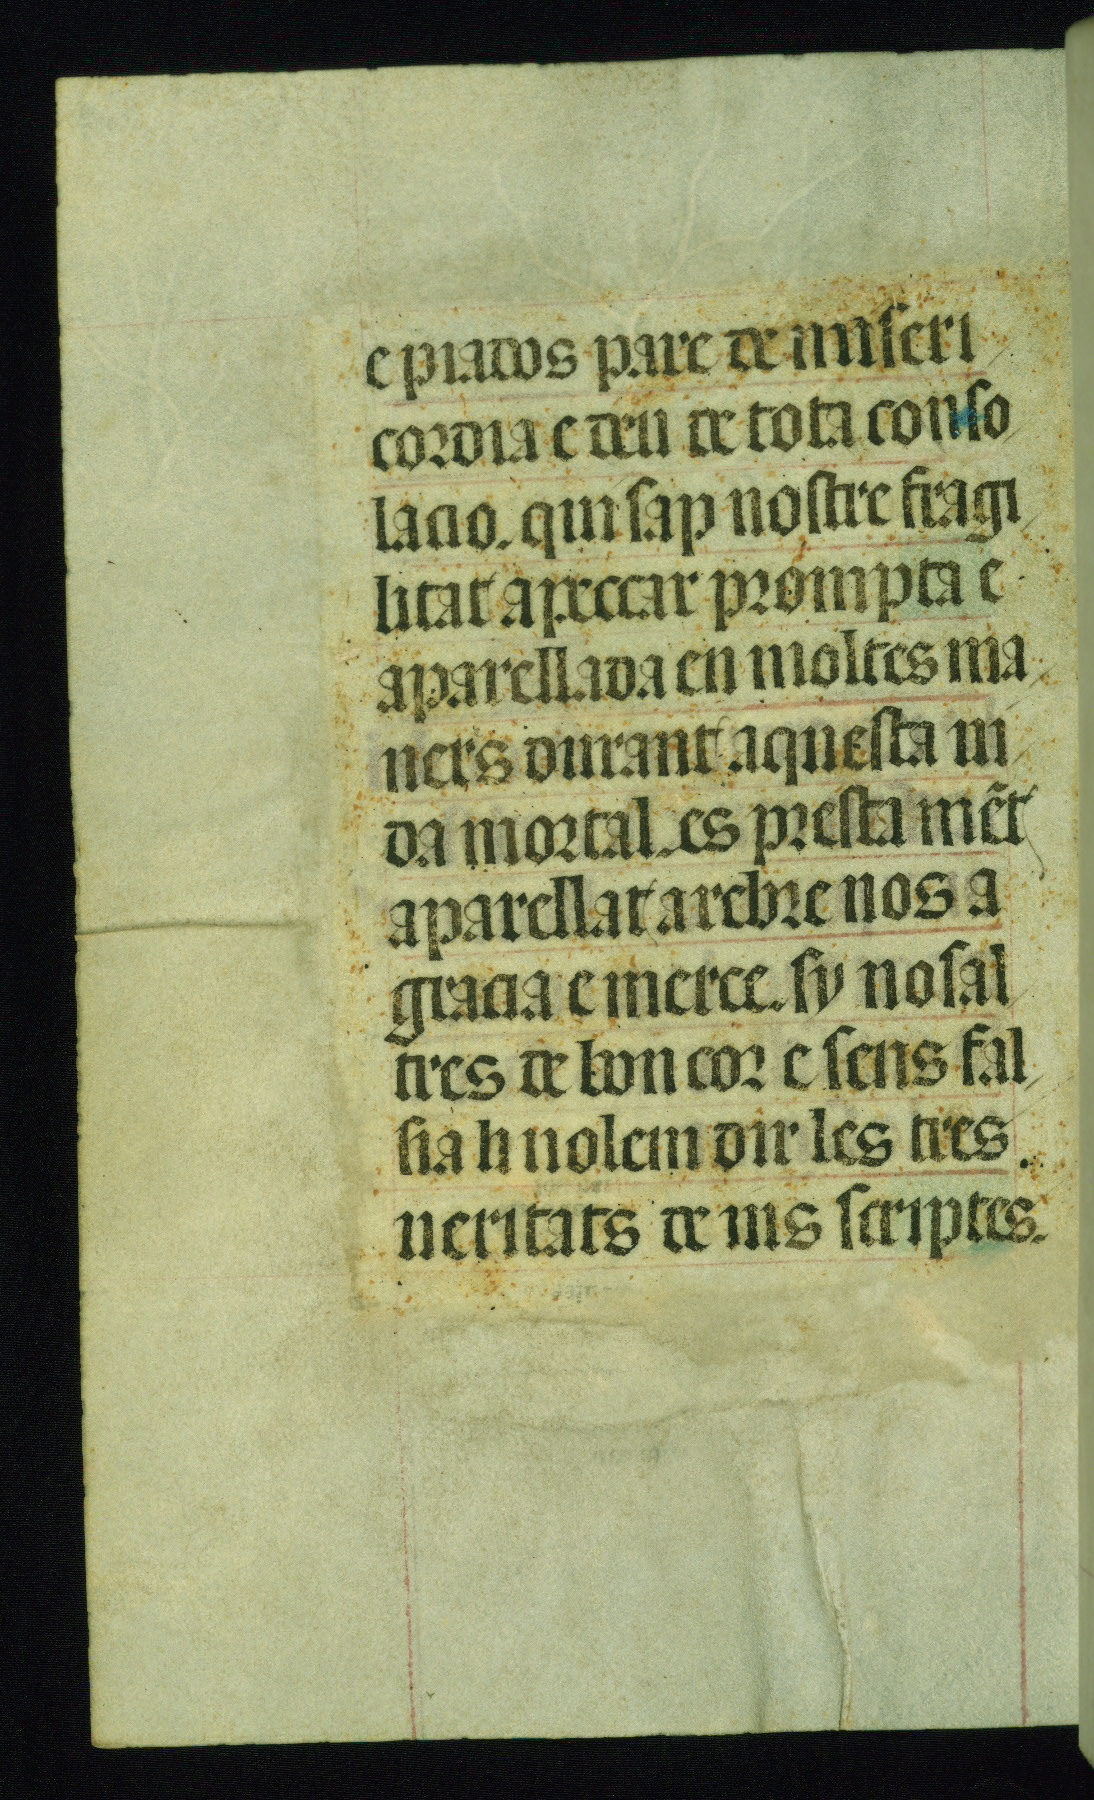 e piados pare de miseri
cordia e deu de tota conso
lacio. qui sap nostre fragi
litat a peccar prompta e
aparellada en moltes ma
ners durant aquesta ui
da mortal. es presta mēt
aparellat a rebre nos a
gracia e merce. sy nosal
tres de bon cor e sens fal
sia li uolem dir les tres
ueritats de uis scriptes.